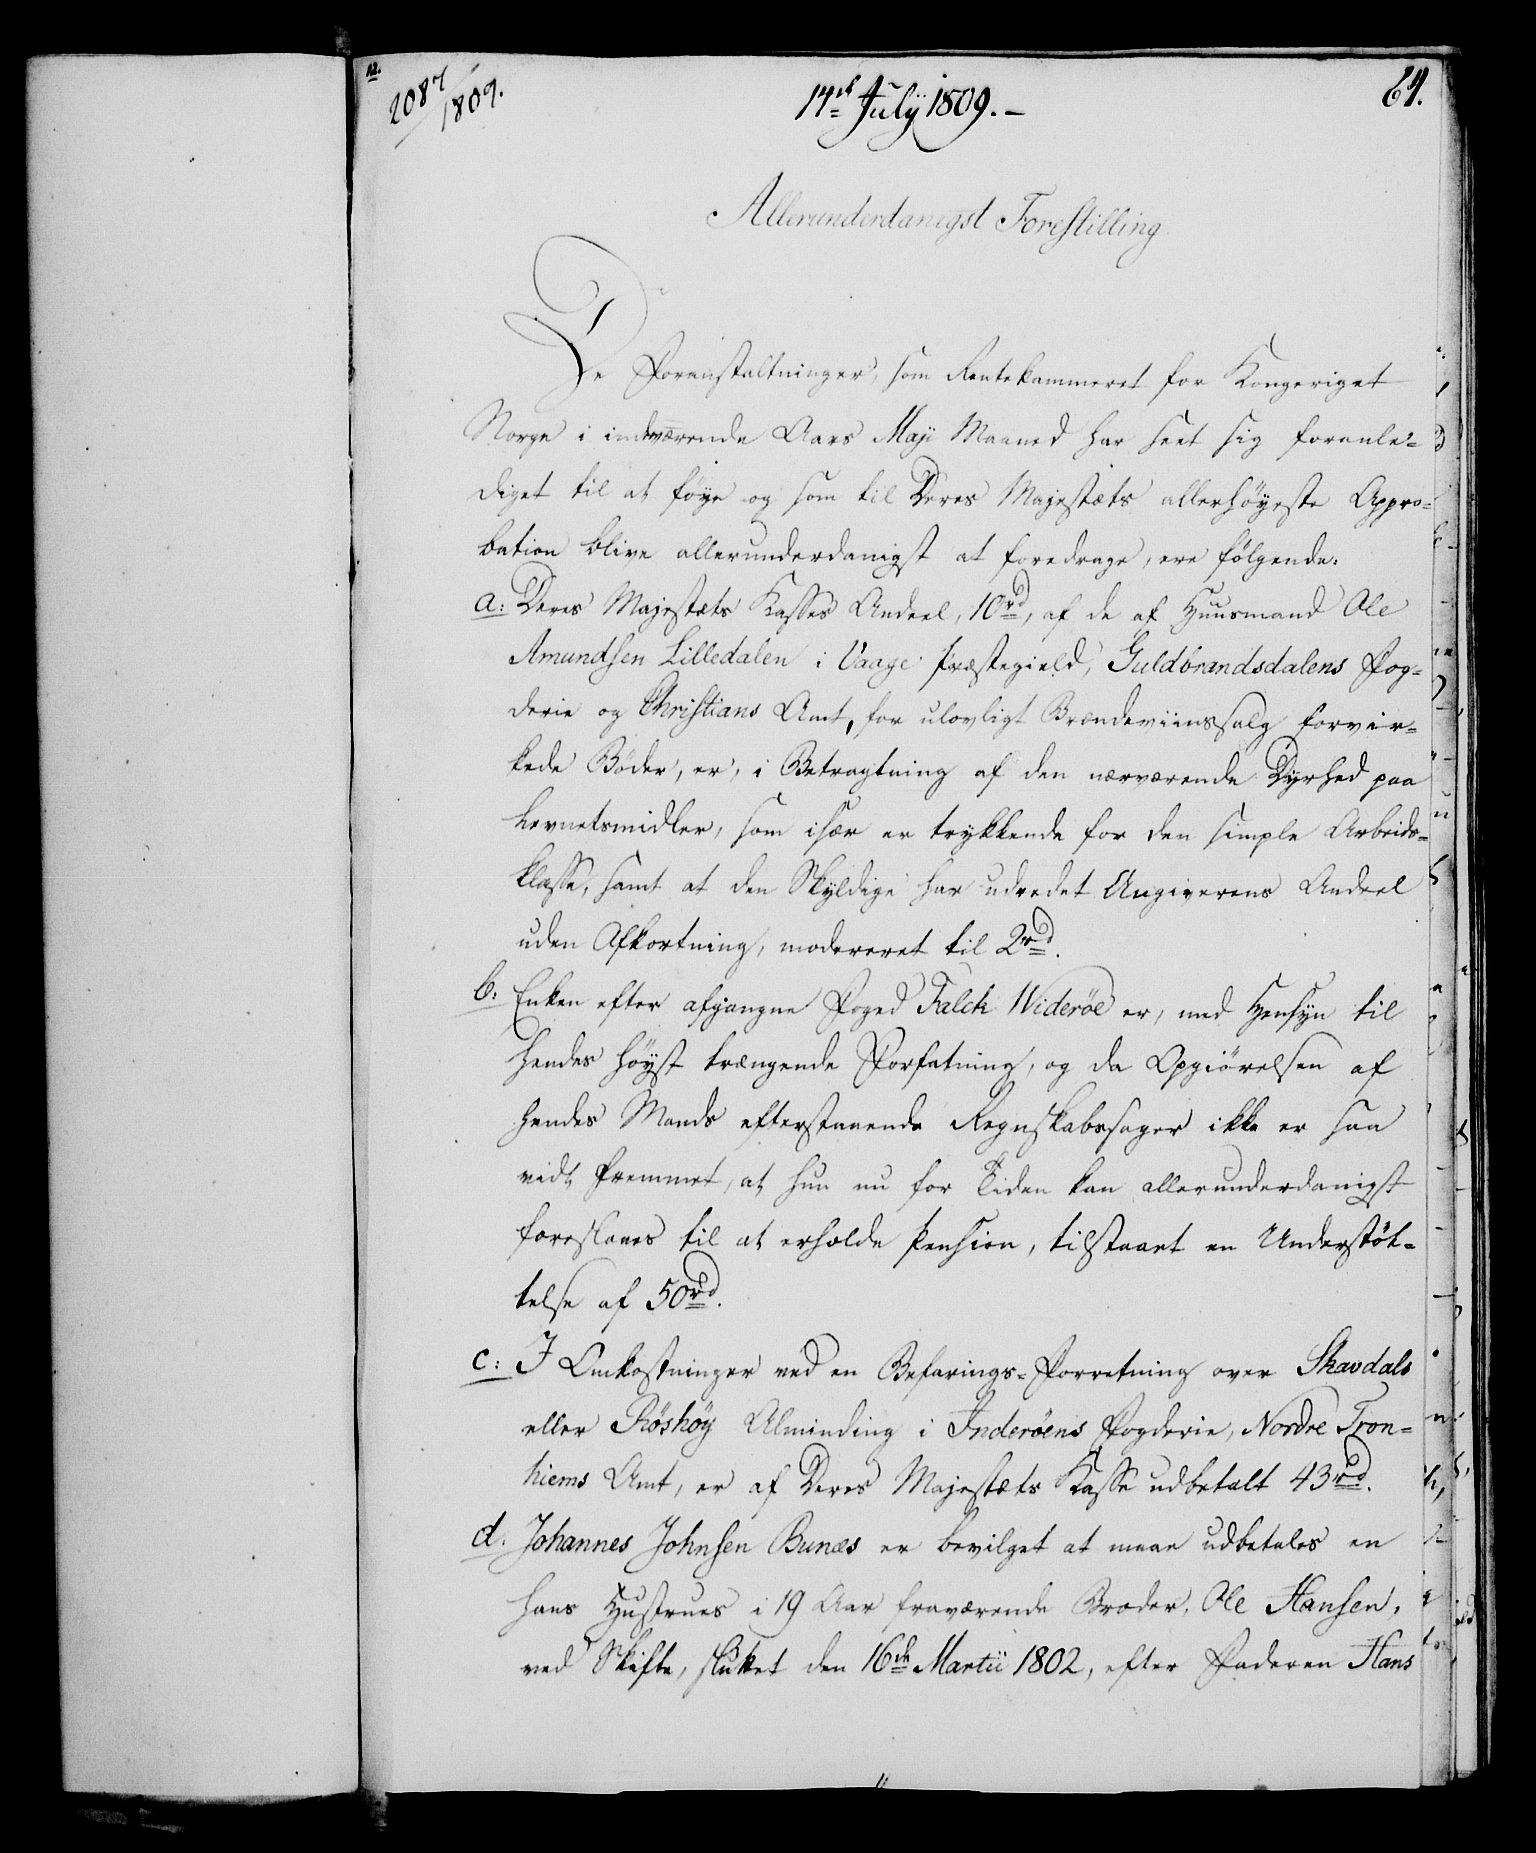 12.
2087/1809.
14de Julÿ 1809.–
64.
Allerunderdanigst Forestilling.
De Foranstaltninger, som Rentekammeret for Kongeriget
Norge i indeværende Aars Maji Maaned har seet sig foranle-
diget til at føÿe og som til Deres Majestæts allerhøÿeste Appro-
bation blive allerunderdanigst at foredrage, ere følgende:
a: Deres Majestæts Kasses Andeel, 10rd, af de af Huusmand Ole
Amundsen Lilledalen i Vaage Præstegield, Guldbrandsdalens Fog-
derie og Christians Amt, for ulovligt Brændeviinssalg forvir-
kede Bøder, er, i Betragtning af den nærværende Dyrhed paa
Levnetsmidler, som især er trykkende for den simple Arbeids-
klasse, samt at den Skyldige har udredet Angiverens Andeel
uden Afkortning, modereret til 2rd.
b: Enken efter afgangne Foged Falck Widerøe er, med Hensÿn til
hendes høÿst trængende Forfatning, og da Opgiørelsen af
hendes Mands efterstaaende Regnskabssager ikke er saa
vidt fremmet, at hun nu for Tiden kan allerunderdanigst
foreslaaes til at erholde Pension, tilstaaet en Understøt-
telse af 50rd.
c: I Omkostninger ved en Befarings-Forretning over Skavdals
eller Røshøÿ Alminding i Inderøens Fogderie, Nordre Tron-
hiems Amt, er af Deres Majestæts Kasse udbetalt 43rd.
d. Johannes Johnsen Bunæs er bevilget at maae udbetales en
hans Hustrues i 19 Aar fraværende Broder, Ole Hansen,
ved Skifte, sluttet den 16de Martii 1802, efter Faderen Hans